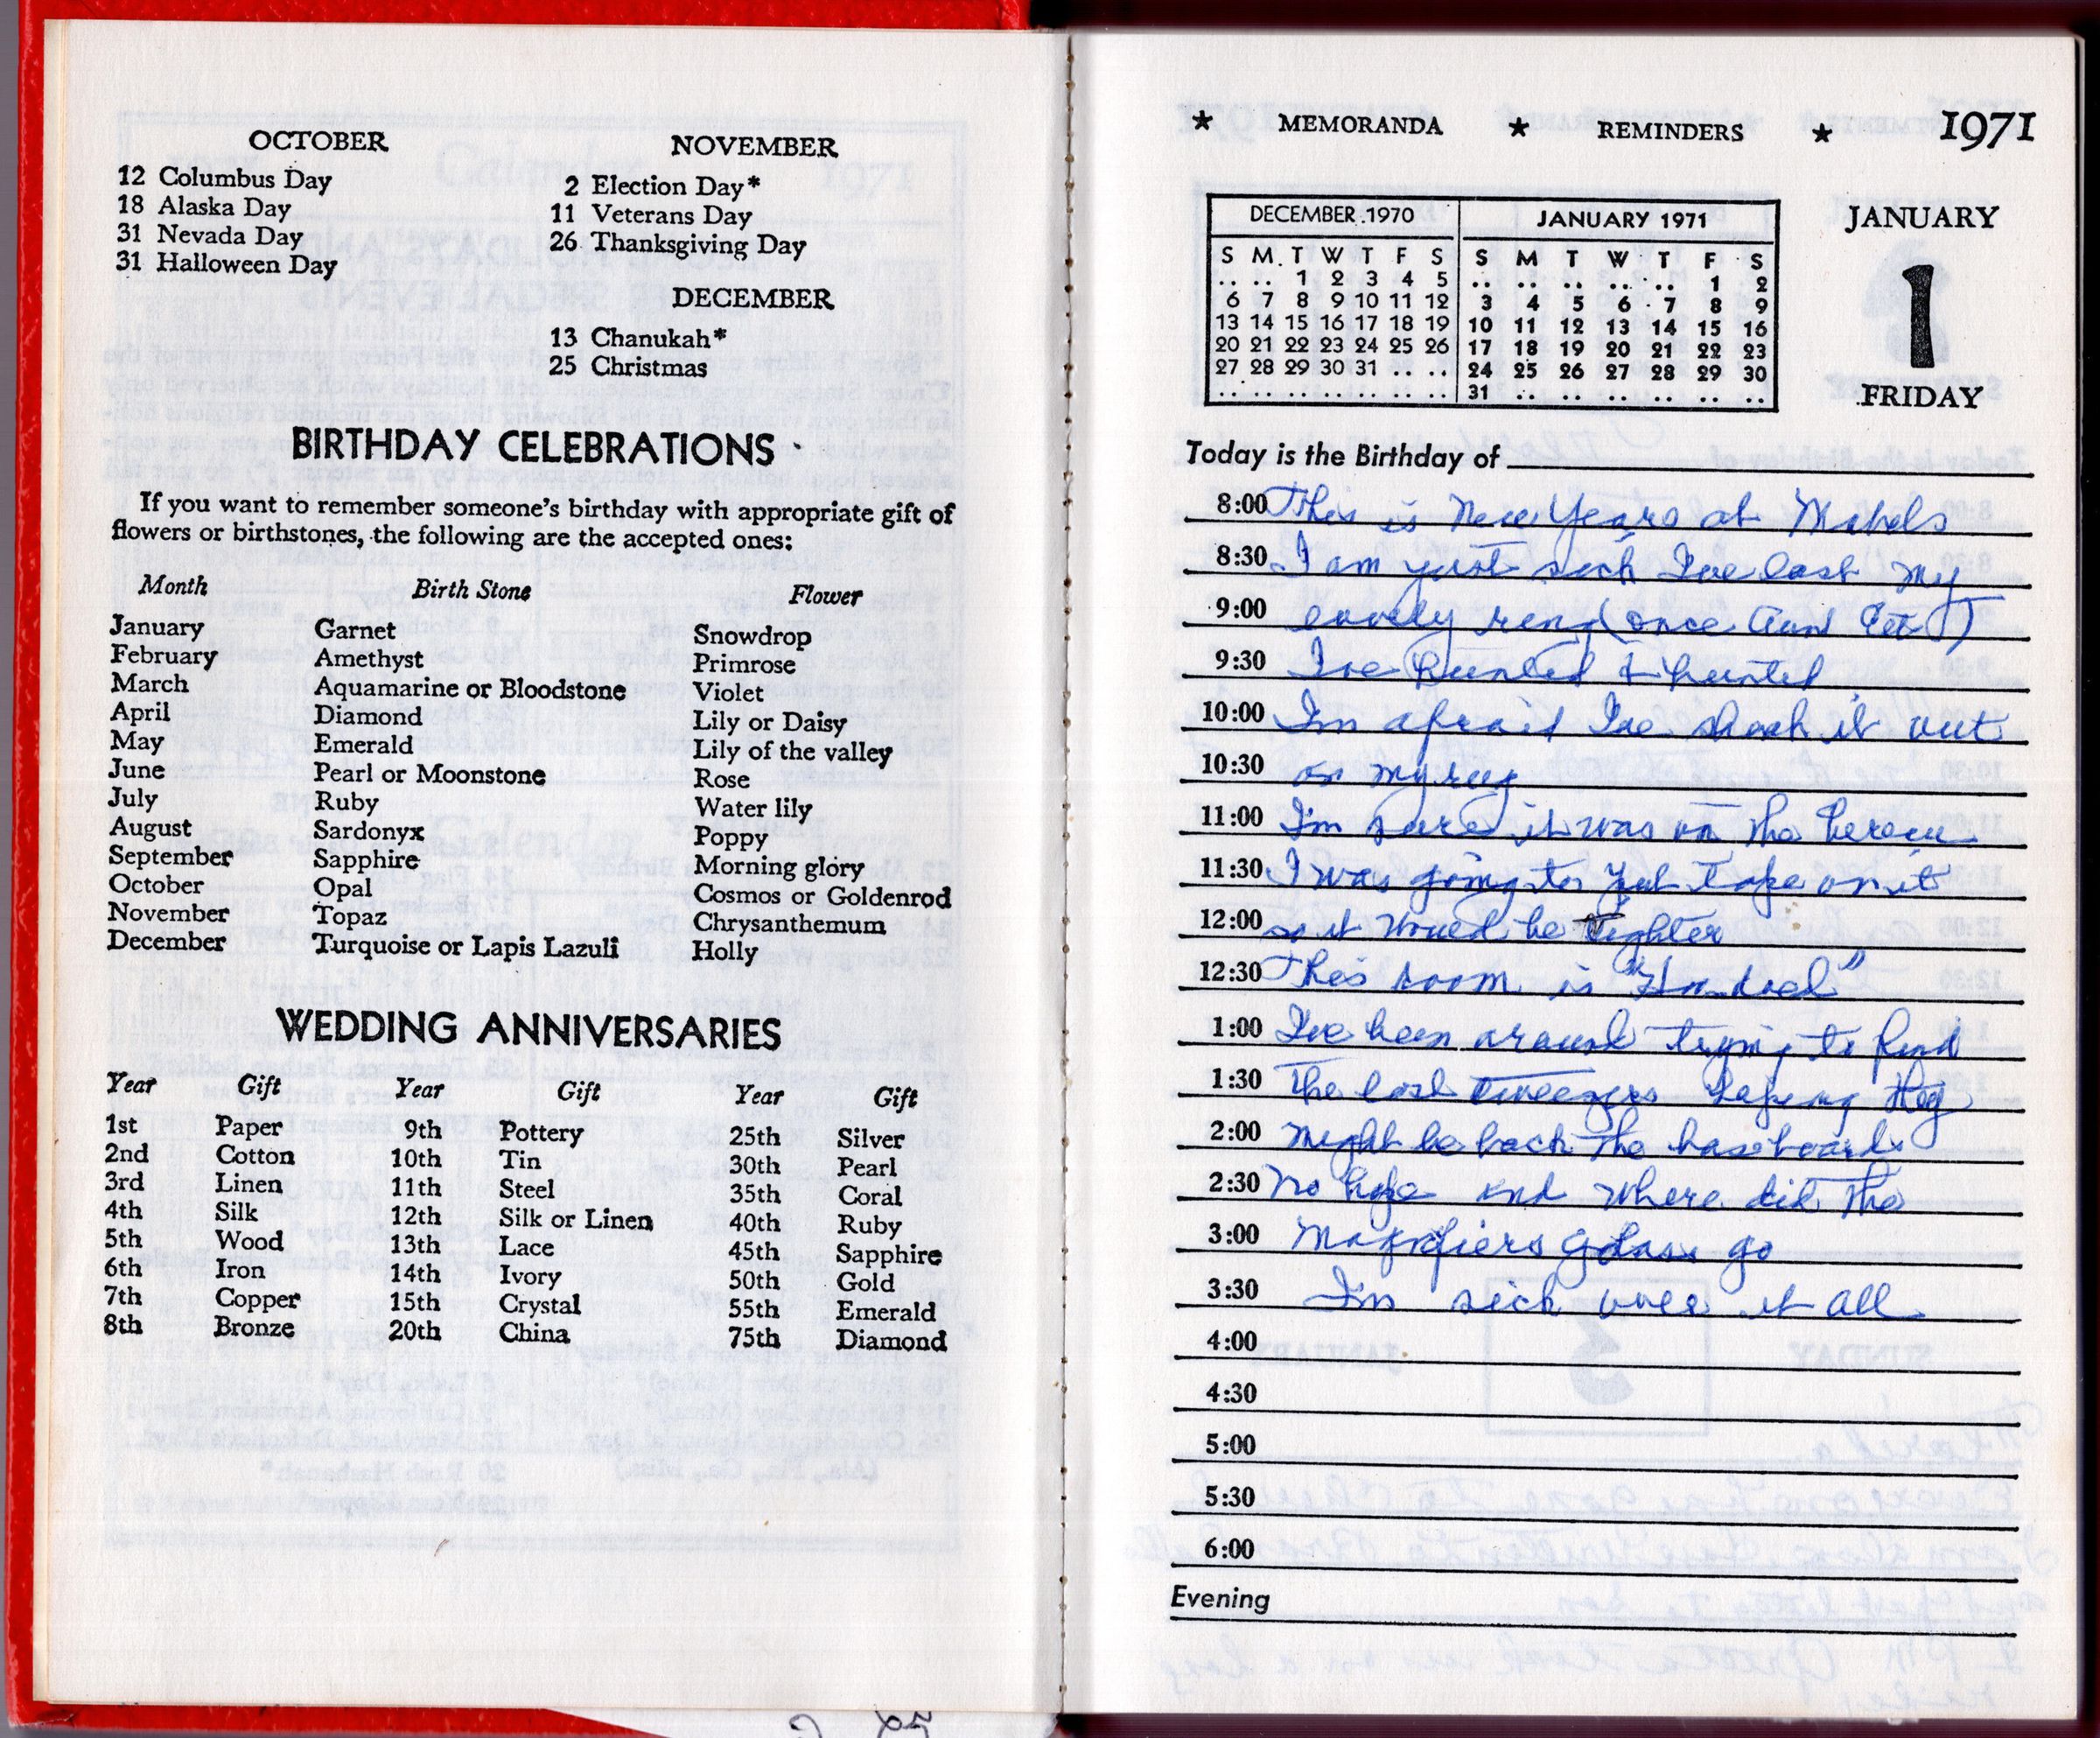 OCTOBER
12 Columbus Day
18 Alaska Day
31 Nevada Day
31 Halloween Day
NOVEMBER
2 Election Day*
11 Veterans Day
26 Thanksgiving Day
DECEMBER
13 Chanukah*
25 Christmas
BIRTHDAY CELEBRATIONS
If you want to remember someone's birthday with appropriate gift of
flowers or birthstones, the following are the accepted ones:
Month Birth Stone Flower
January Garnet Snowdrop
February Amethyst Primrose
March Aquamarine or Bloodstone Violet
April Diamond Lily or Daisy
May Emerald Lily of the valley
June Pearl or Moonstone Rose
July Ruby Water lily
August Sardonyx Poppy
September Sapphire Morning glory
October Opal Cosmos or Goldenrod
November Topaz Chrysanthemum
December Turquoise or Lapis Lazuli Holly
WEDDING ANNIVERSARIES
Year Gift Year Gift Year Gift
1st Paper 9th Pottery 25th Silver
2nd Cotton 10th Tin 30th Pearl
3rd Linen 11th Steel 35th Coral
4th Silk 12th Silk or Linen 40th Ruby
5th Wood 13th Lace 45th Sapphire
6th Iron 14th Ivory 50th Gold
7th Copper 15th Crystal 55th Emerald
8th Bronze 20th China 75th Diamond
★ MEMORANDA ★ REMINDERS ★ 1971
DECEMBER 1970 JANUARY 1971
S M T W T F S S M T W T F S
.. .. 1 2 3 4 5 .. .. .. .. .. 1 2
6 7 8 9 10 11 12 3 4 5 6 7 8 9
13 14 15 16 17 18 19 10 11 12 13 14 15 16
20 21 22 23 24 25 26 17 18 19 20 21 22 23
27 28 29 30 31 .. .. 24 25 26 27 28 29 30
.. .. .. .. .. .. .. 31 .. .. .. .. .. ..
JANUARY
1
FRIDAY
Today is the Birthday of
8:00 This is New Years at Mabels
8:30 I am just sick Ive lost my
9:00 lovely ring (once Aunt
9:30 Ive hunted & hunted
10:00 Im afraid Ive shook it out
10:30 on my rug
11:00 I'm sure it was on the bereau
11:30 I was going to put tape on it
12:00 so it would be tighter
12:30 This room is "Hoodoed"
1:00 I've been around trying to find
1:30 The lost tweezers hoping they
2:00 might be back the baseboards
2:30 No hope and where did the
3:00 Magnifiers glass go
3:30 Im sick over it all
4:00
4:30
5:00
5:30
6:00
Evening